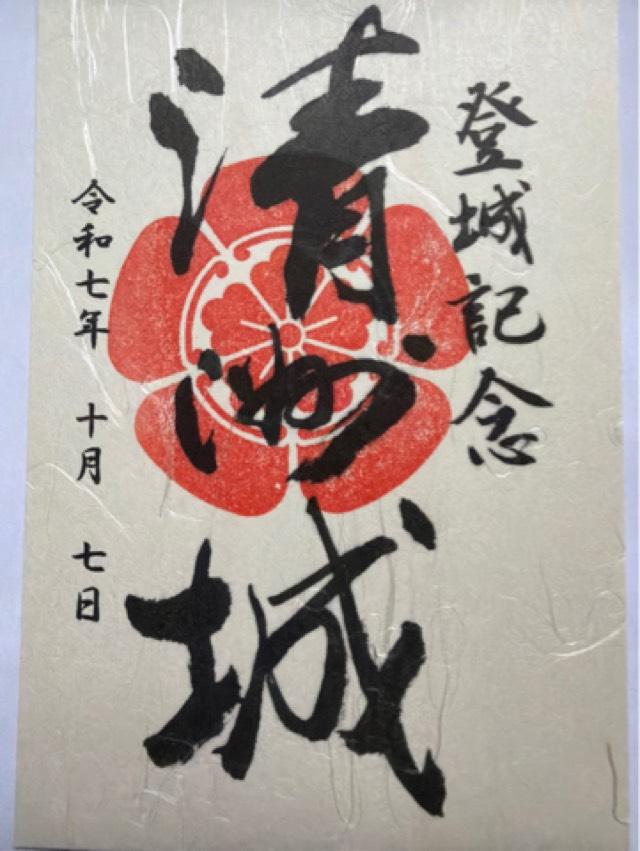 登城記念
清洲城
令和七年 十月 七日